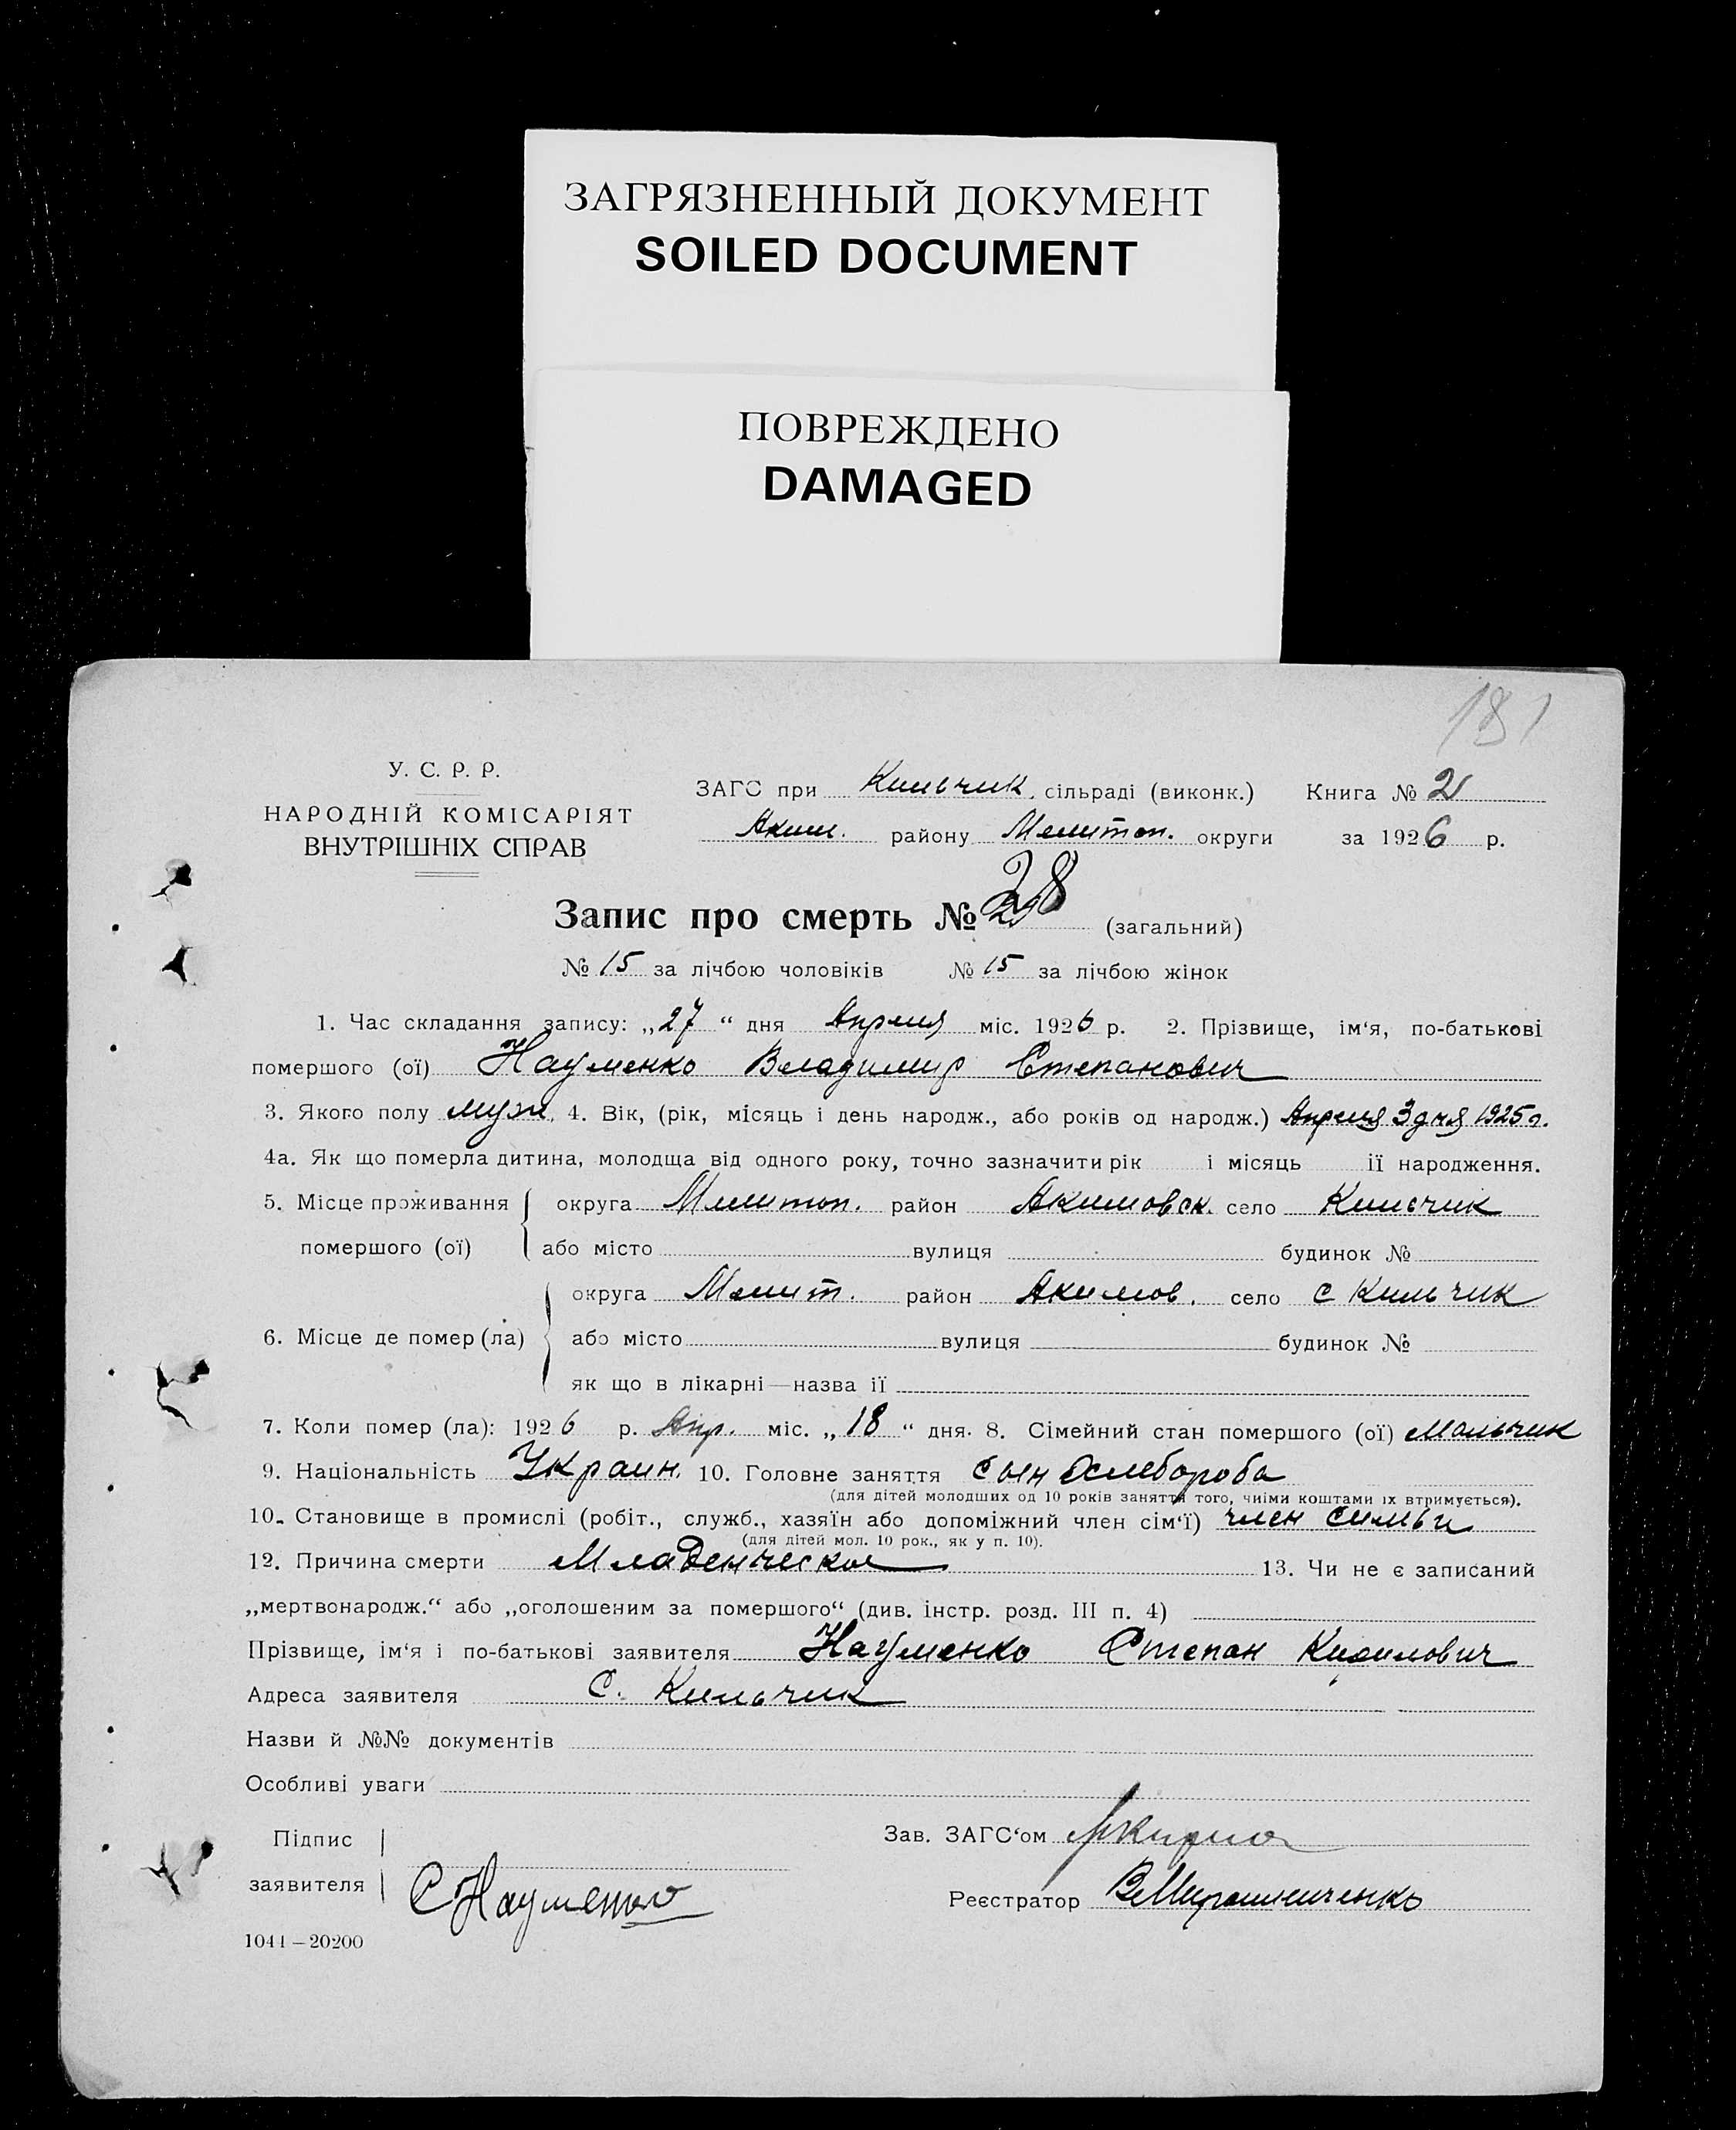 ЗАГРЯЗНЕННЫЙ ДОКУМЕНТ
SOILED DOCUMENT
ПОВРЕЖДЕНО
DAMAGED
181
У. С. Р. Р.
НАРОДНІЙ КОМІСАРІЯТ
ВНУТРІШНІХ СПРАВ
ЗАГС при Кильчик. сільраді (виконк.) Книга № 2
Аким. району Мелитоп. округи за 1926 р.
Запис про смерть № 28 (загальний)
№ 15 за лічбою чоловіків № 15 за лічбою жінок
1. Час складання запису: „27“ дня Апреля міс. 1926 р. 2. Прізвище, ім‘я, по-батькові
помершого (ої) Науменко Владимир Степанович
3. Якого полу муж. 4. Вік, (рік, місяць і день народж., або років од народж.) Апреля 3 дня 1925 г.
4а. Як що померла дитина, молодща від одного року, точно зазначити рік і місяць її народження.
5. Місце проживання округа Мелитоп. район Акимовск. село Кильчик
помершого (ої) або місто вулиця будинок №
округа Мелит. район Акимов. село с Кильчик
6. Місце де помер (ла) або місто вулиця будинок №
як що в лікарні—назва її
7. Коли помер (ла): 1926 р. Апр. міс. „18“ дня. 8. Сімейний стан помершого (ої) мальчик
9. Національність Украин. 10. Головне заняття сын
(для дітей молодших од 10 років заняття того, чиїми коштами їх втримується).
10. Становище в промислі (робіт., служб., хазяїн або допоміжний член сім‘ї) член симьи
(для дітей мол. 10 рок., як у п. 10).
12. Причина смерти Младенческое 13. Чи не є записаний
„мертвонародж.“ або „оголошеним за помершого“ (див. інстр. розд. III п. 4)
Прізвище, ім‘я і по-батькові заявителя Науменко Степан
Адреса заявителя С. Кильчик
Назви й №№ документів
Особливі уваги
Підпис Зав. ЗАГС‘ом
заявителя С Науменко Реєстратор ВМирошниченко
1044—20200